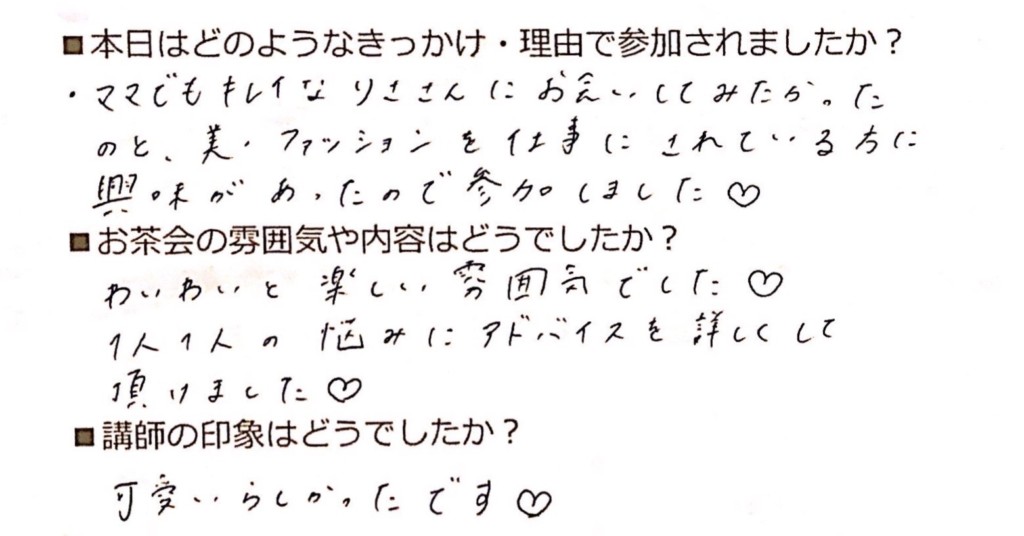 ■本日はどのようなきっかけ・理由で参加されましたか？
・ママでもキレイなりささんにお会いしてみたかった
のと、美・ファッションを仕事にされている方に
興味があったので参加しました♡
■お茶会の雰囲気や内容はどうでしたか？
わいわいと楽しい雰囲気でした♡
1人1人の悩みにアドバイスを詳しくして
頂けました♡
■講師の印象はどうでしたか？
可愛いらしかったです♡